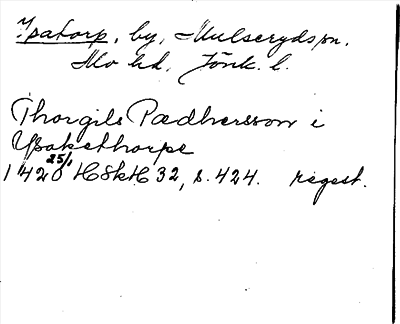 Ypatorp, by, Mulserydssn.
Mo hd, Jönk. l.
Thorgils Pædhersson i
Ypakethorpe
1420 25/1 HSkH 32, s. 424. regest.